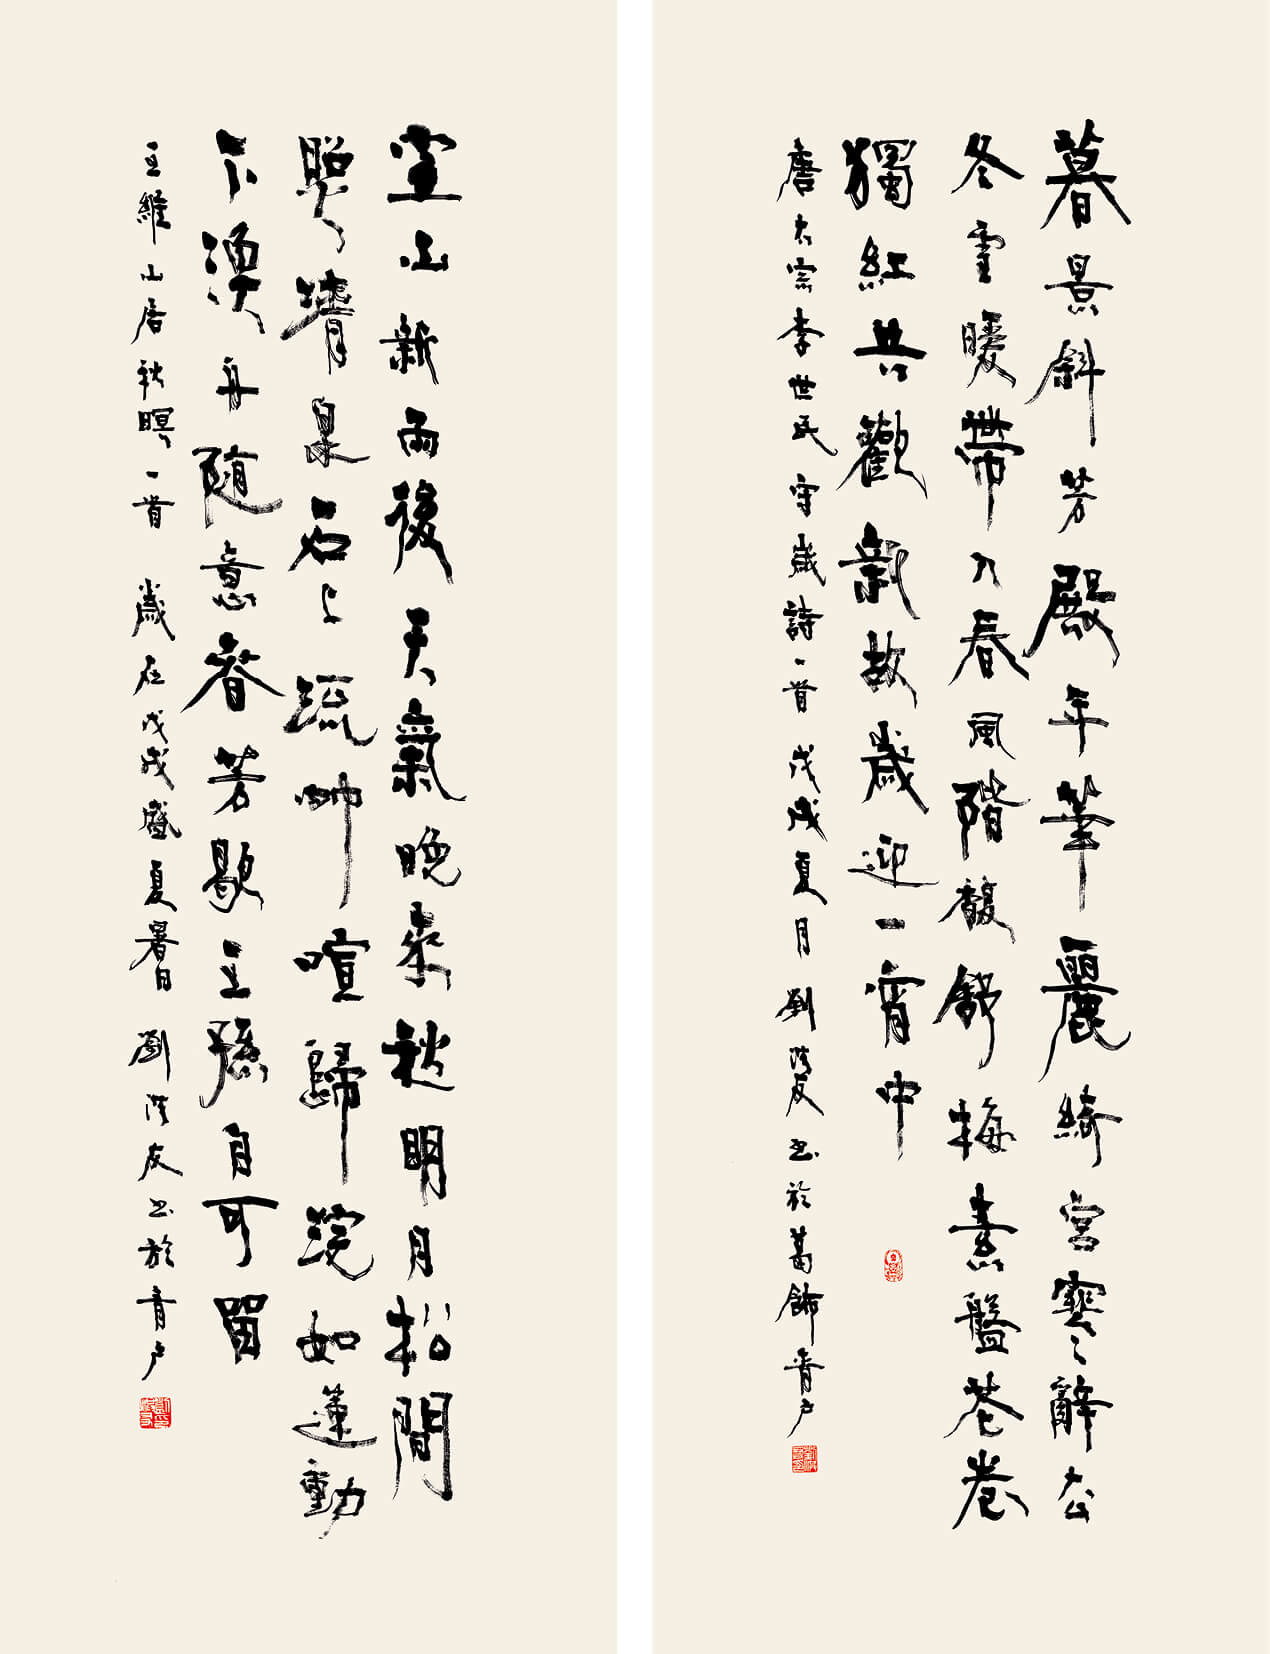 暮景斜芳殿年華麗綺宮寒辭去
冬雪暖帶入春風階馥舒梅素盤花卷
燭紅共歡新故歲迎一宵中
唐太宗李世民守歲詩一首 戊戌夏月 劉洪友書於葛飾青戶
空山新雨後天氣晚來秋明月松間
照清泉石上流竹喧歸浣如蓮動
下漁舟随意春芳歇王孫自可留
王維山居秋暝一首 歲在戊戌盛夏暑日 劉洪友書於青戶